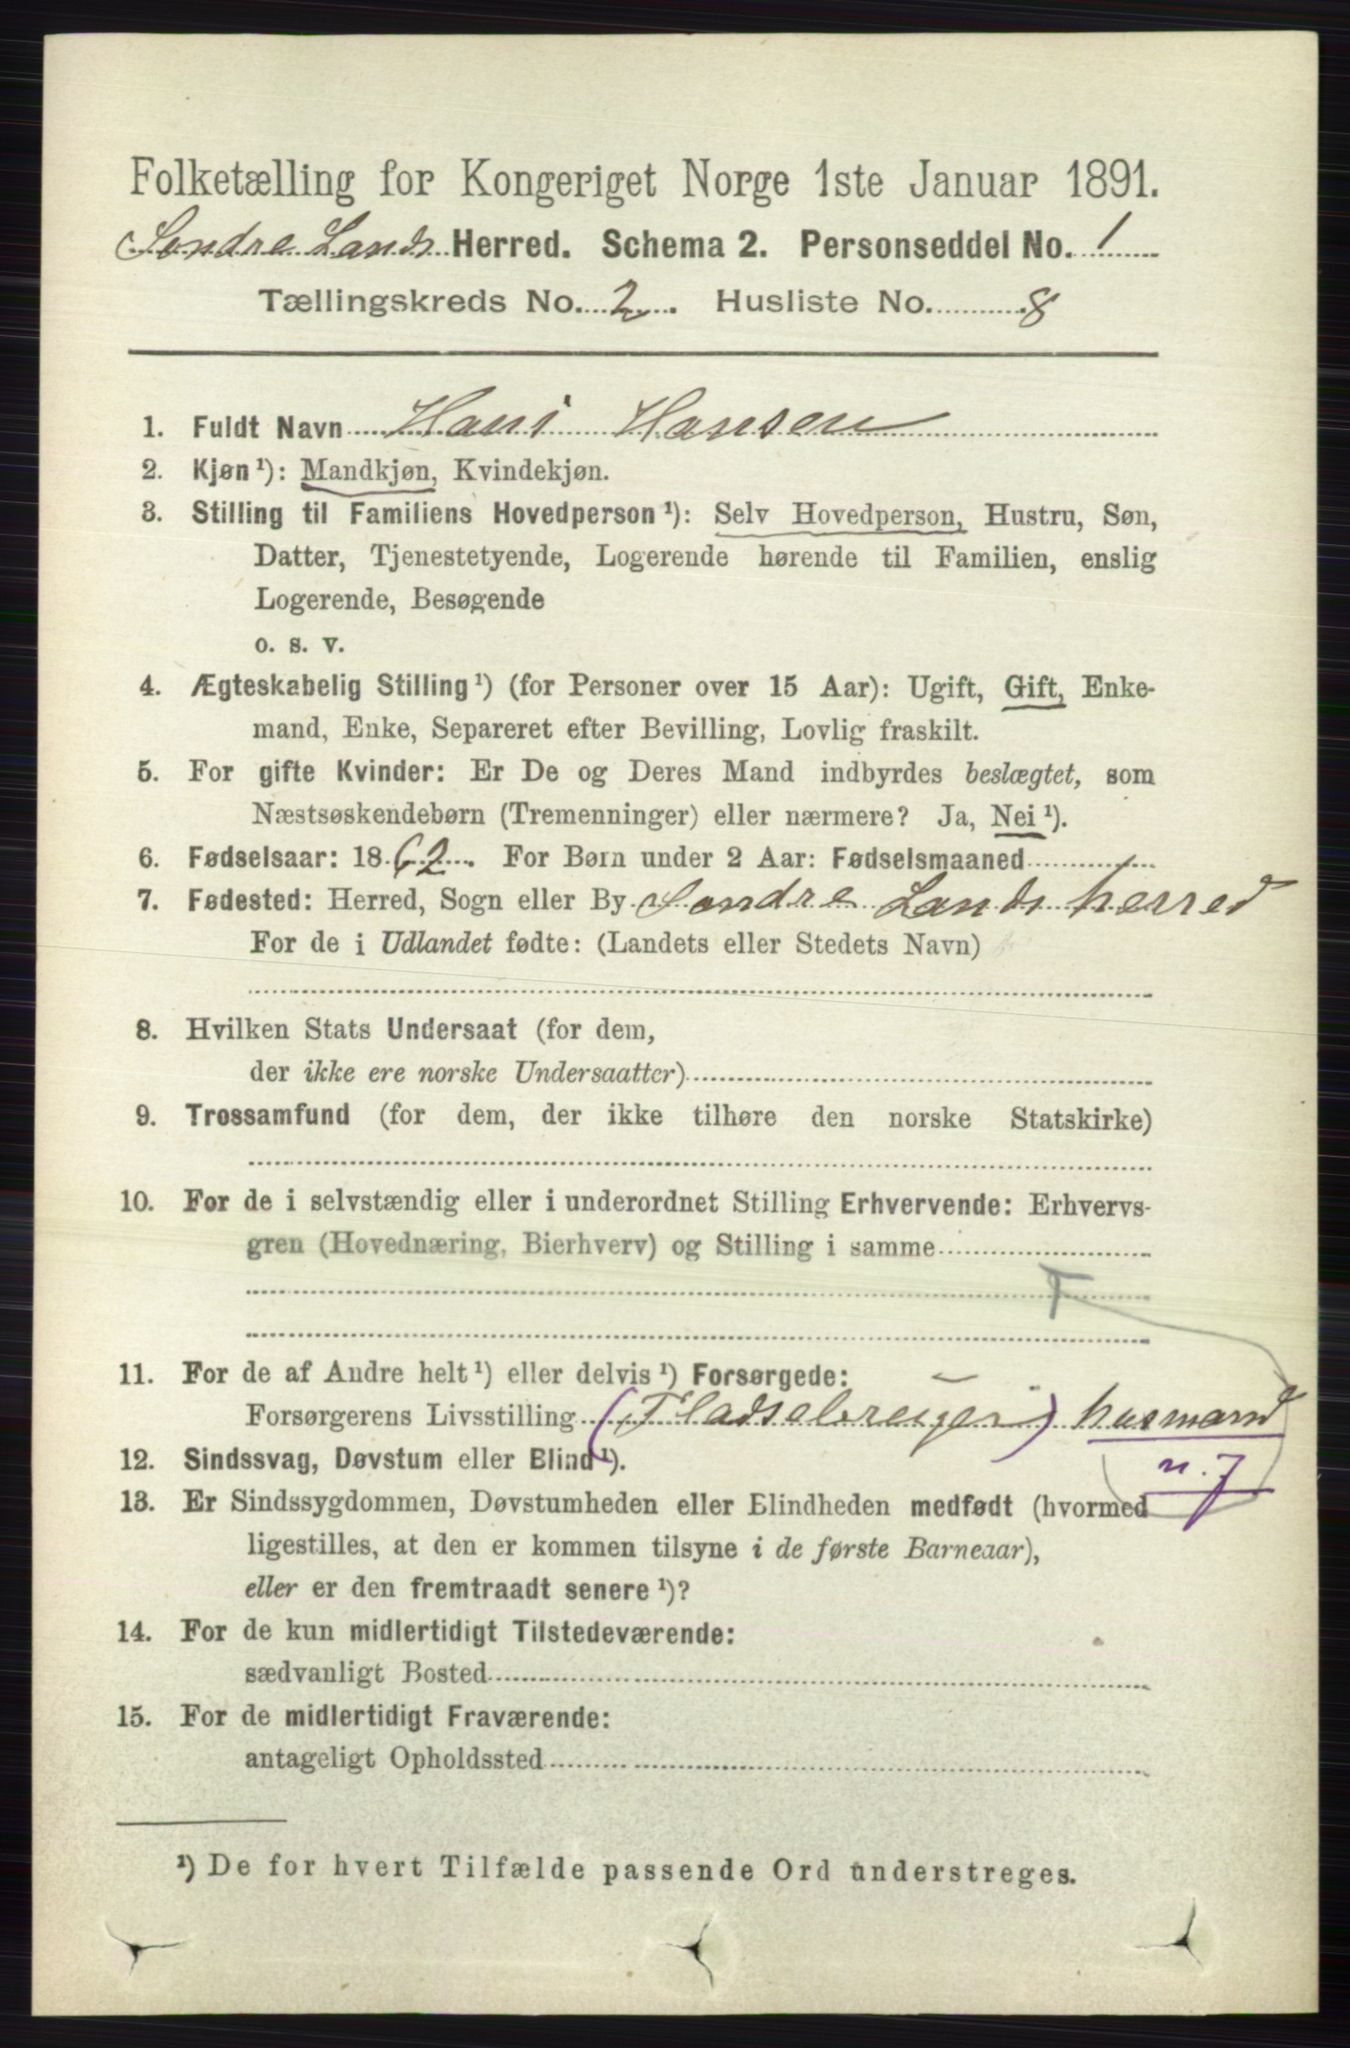 Folketælling for Kongeriget Norge 1ste Januar 1891.
Søndre Lands Herred. Schema 2. Personseddel No. 1
Tællingskreds No. 2. Husliste No. 8
1. Fuldt Navn Hans Hansen
2. Kjøn ¹): Mandkjøn, Kvindekjøn.
3. Stilling til Familiens Hovedperson ¹): Selv Hovedperson, Hustru, Søn,
Datter, Tjenestetyende, Logerende hørende til Familien, enslig
Logerende, Besøgende
o. s. v.
4. Ægteskabelig Stilling ¹) (for Personer over 15 Aar): Ugift, Gift, Enke-
mand, Enke, Separeret efter Bevilling, Lovlig fraskilt.
5. For gifte Kvinder: Er De og Deres Mand indbyrdes beslægtet, som
Næstsøskendebørn (Tremenninger) eller nærmere? Ja, Nei ¹).
6. Fødselsaar: 1862. For Børn under 2 Aar: Fødselsmaaned
7. Fødested: Herred, Sogn eller By Søndre Lands herred
For de i Udlandet fødte: (Landets eller Stedets Navn)
8. Hvilken Stats Undersaat (for dem,
der ikke ere norske Undersaatter)
9. Trossamfund (for dem, der ikke tilhøre den norske Statskirke)
10. For de i selvstændig eller i underordnet Stilling Erhvervende: Erhvervs-
gren (Hovednæring, Bierhverv) og Stilling i samme
11. For de af Andre helt ¹) eller delvis ¹) Forsørgede:
Forsørgerens Livsstilling (Pladsebruger) husmand
12. Sindssvag, Døvstum eller Blind ¹).
n. 7
13. Er Sindssygdommen, Døvstumheden eller Blindheden medfødt (hvormed
ligestilles, at den er kommen tilsyne i de første Barneaar),
eller er den fremtraadt senere ¹)?
14. For de kun midlertidigt Tilstedeværende:
sædvanligt Bosted
15. For de midlertidigt Fraværende:
antageligt Opholdssted
¹) De for hvert Tilfælde passende Ord understreges.